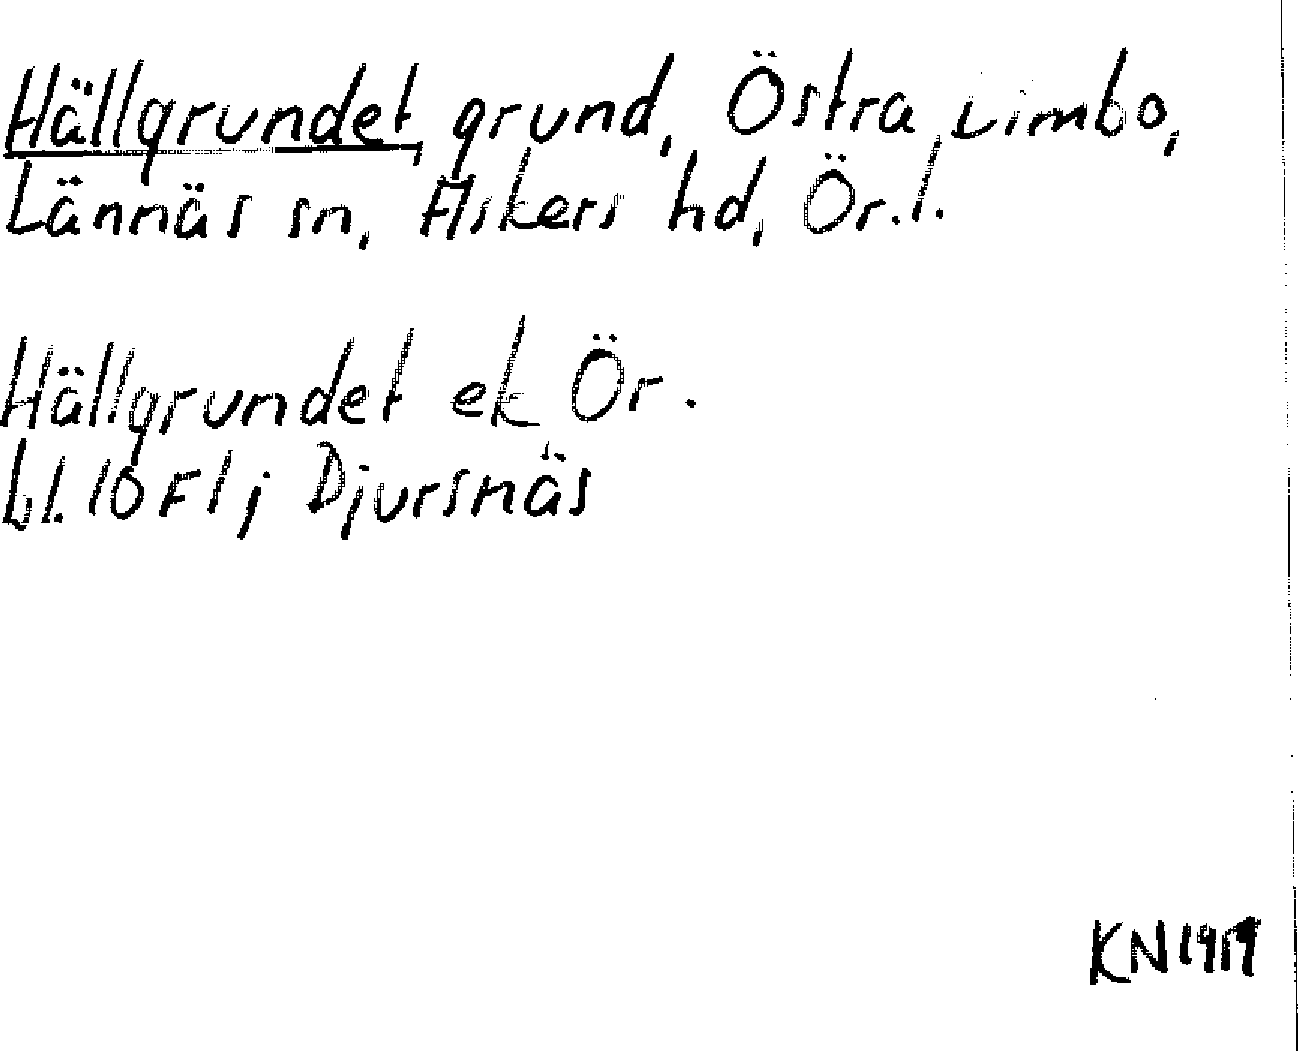 Hällgrundet, grund, Östra Limbo,
Lännäs sn, Askers hd, Ör.l.
Hällgrundet ek Ör.
bl. 10 F1j Djursnäs
KN